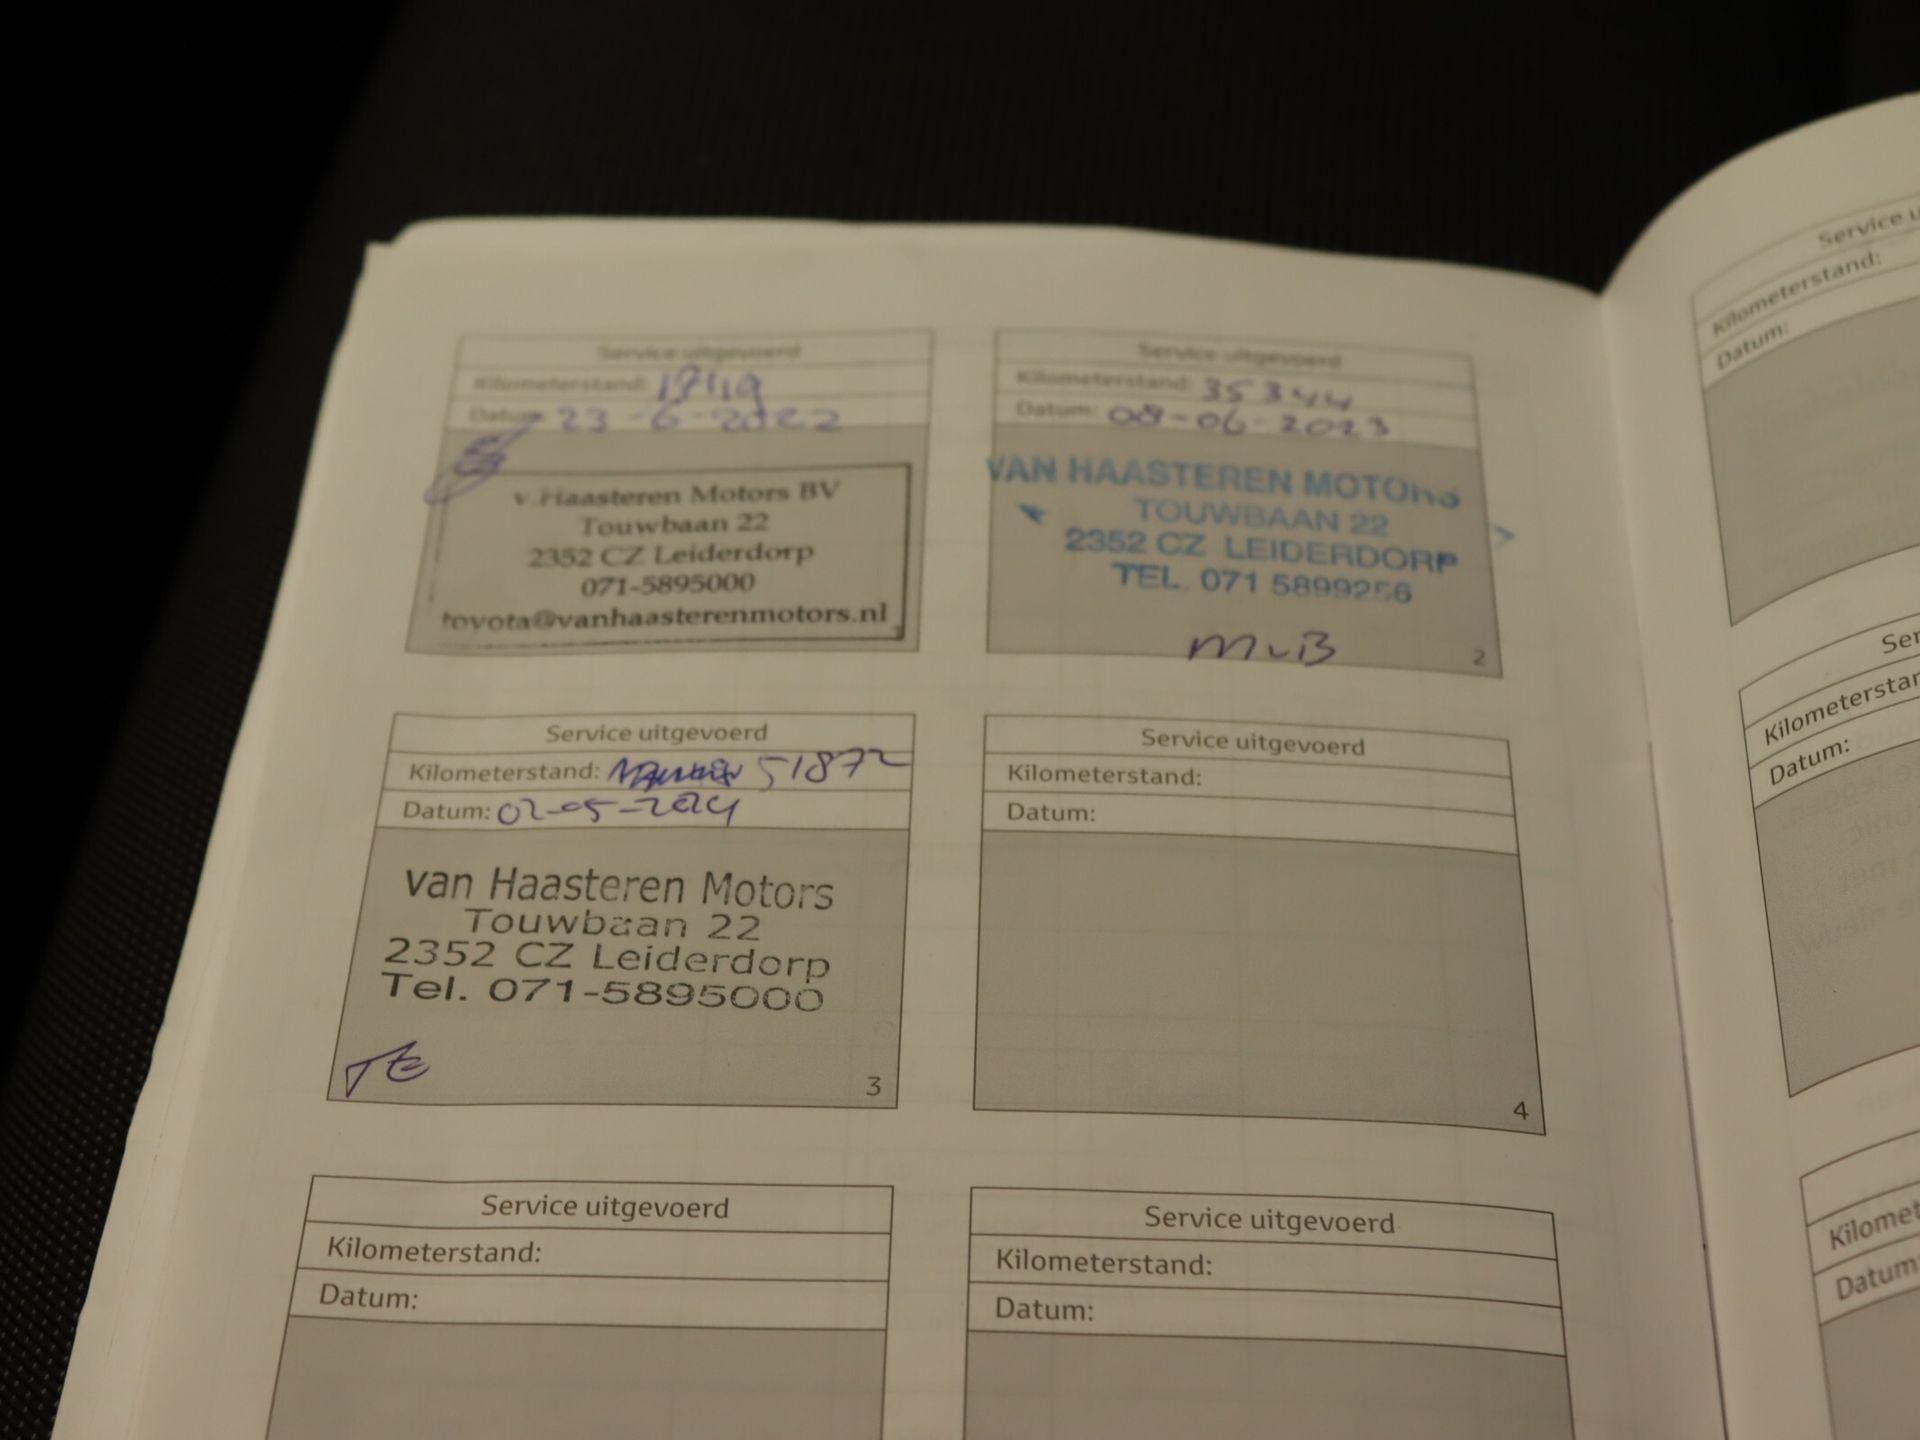 Service uitgevoerd
Kilometerstand: 17419
Datum: 23-6-2022
v.Haasteren Motors BV
Touwbaan 22
2352 CZ Leiderdorp
071-5895000
toyota@vanhaasterenmotors.nl
Service uitgevoerd
Kilometerstand: 35344
Datum: 08-06-2023
VAN HAASTEREN MOTORS
TOUWBAAN 22
2352 CZ LEIDERDORP
TEL. 071 5899256
MvB
2
Service uitgevoerd
Kilometerstand: 51872
Datum: 02-05-2024
van Haasteren Motors
Touwbaan 22
2352 CZ Leiderdorp
Tel. 071-5895000
3
Service uitgevoerd
Kilometerstand:
Datum:
4
Service uitgevoerd
Kilometerstand:
Datum:
Service uitgevoerd
Kilometerstand:
Datum:
Service
Kilometerstand:
Datum:
Datum: